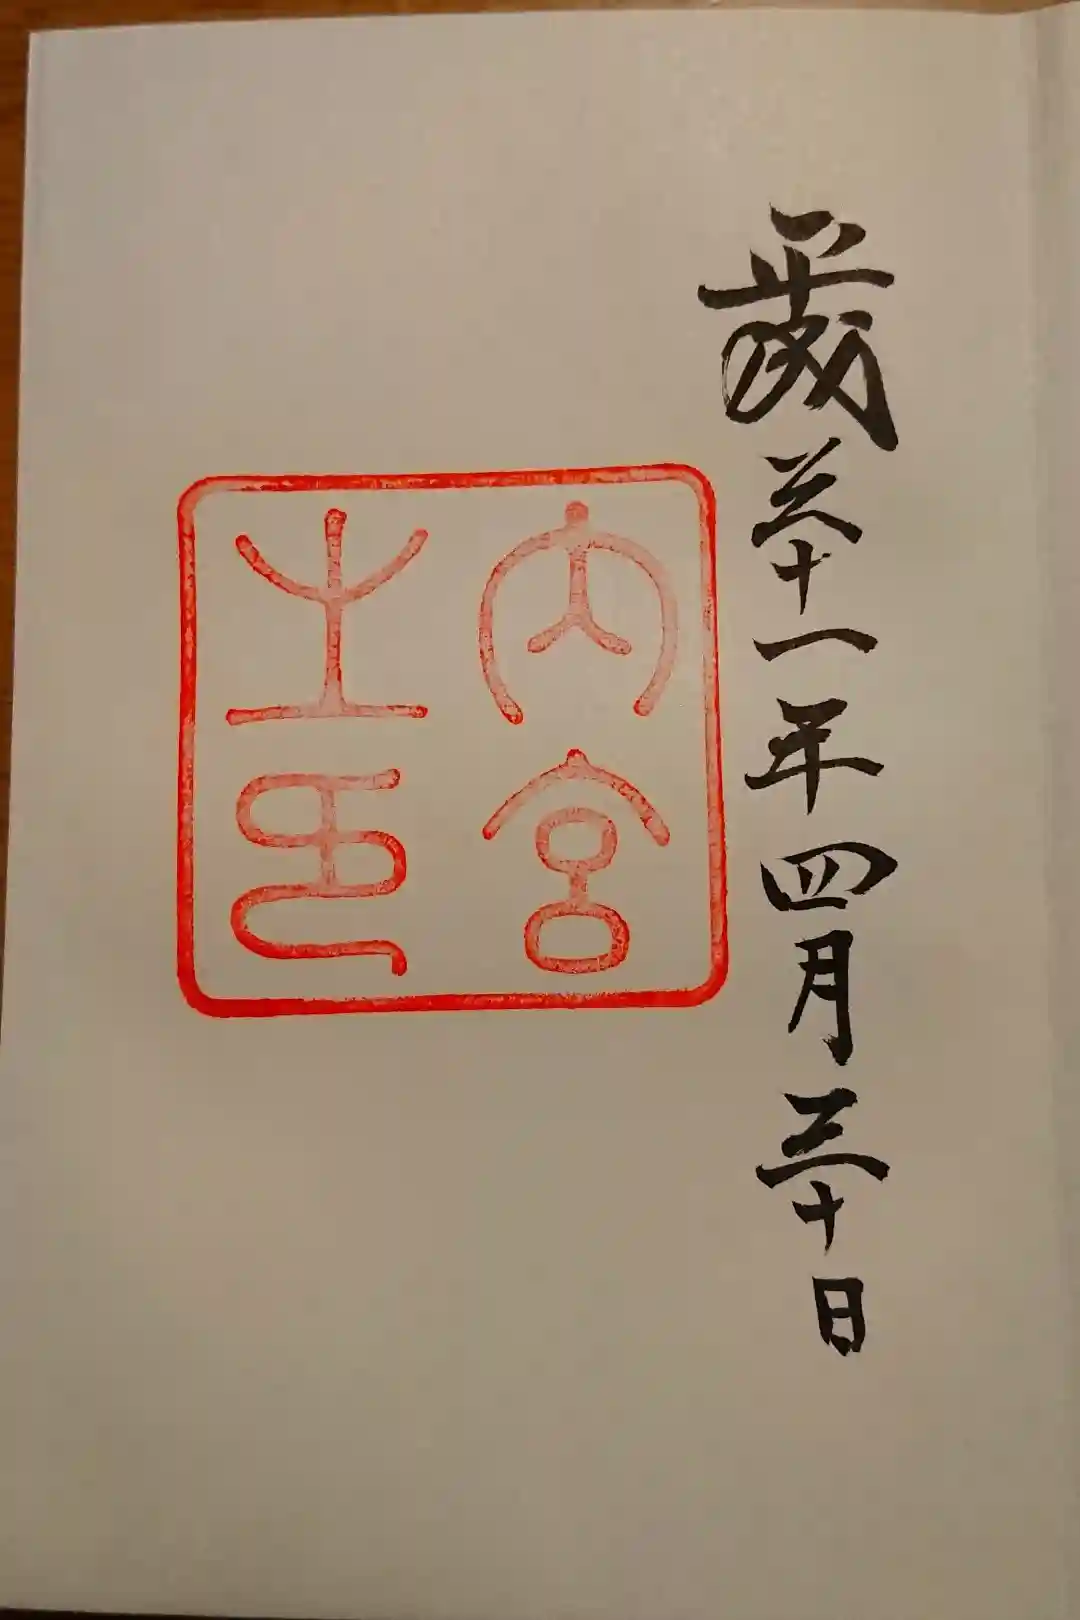 平成三十一年四月三十日
内宮
之印